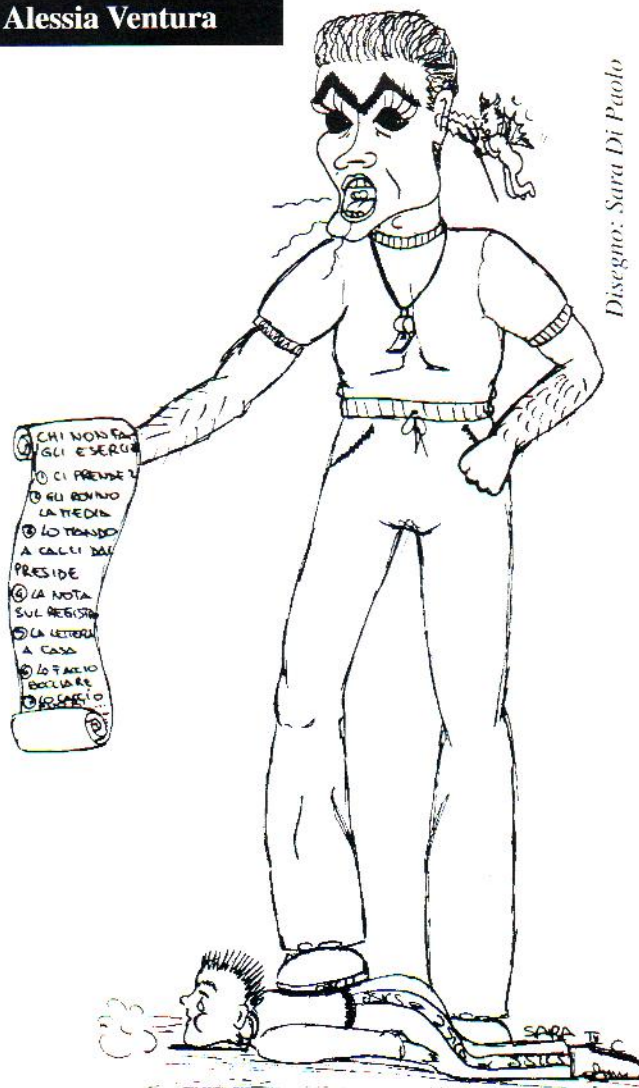 Alessia Ventura
Disegno: Sara Di Paolo
CHI NON FA
GLI ESERCIZ
① CI PRENDE 2
② GLI ROVINO
LA MEDIA
③ LO MANDO
A CALCI DAL
PRESIDE
④ LA NOTA
SUL REGISTRO
⑤ LA LETTERA
A CASA
⑥ LO FACCIO
BOCCIARE
⑦ LO CACCIO
SARA